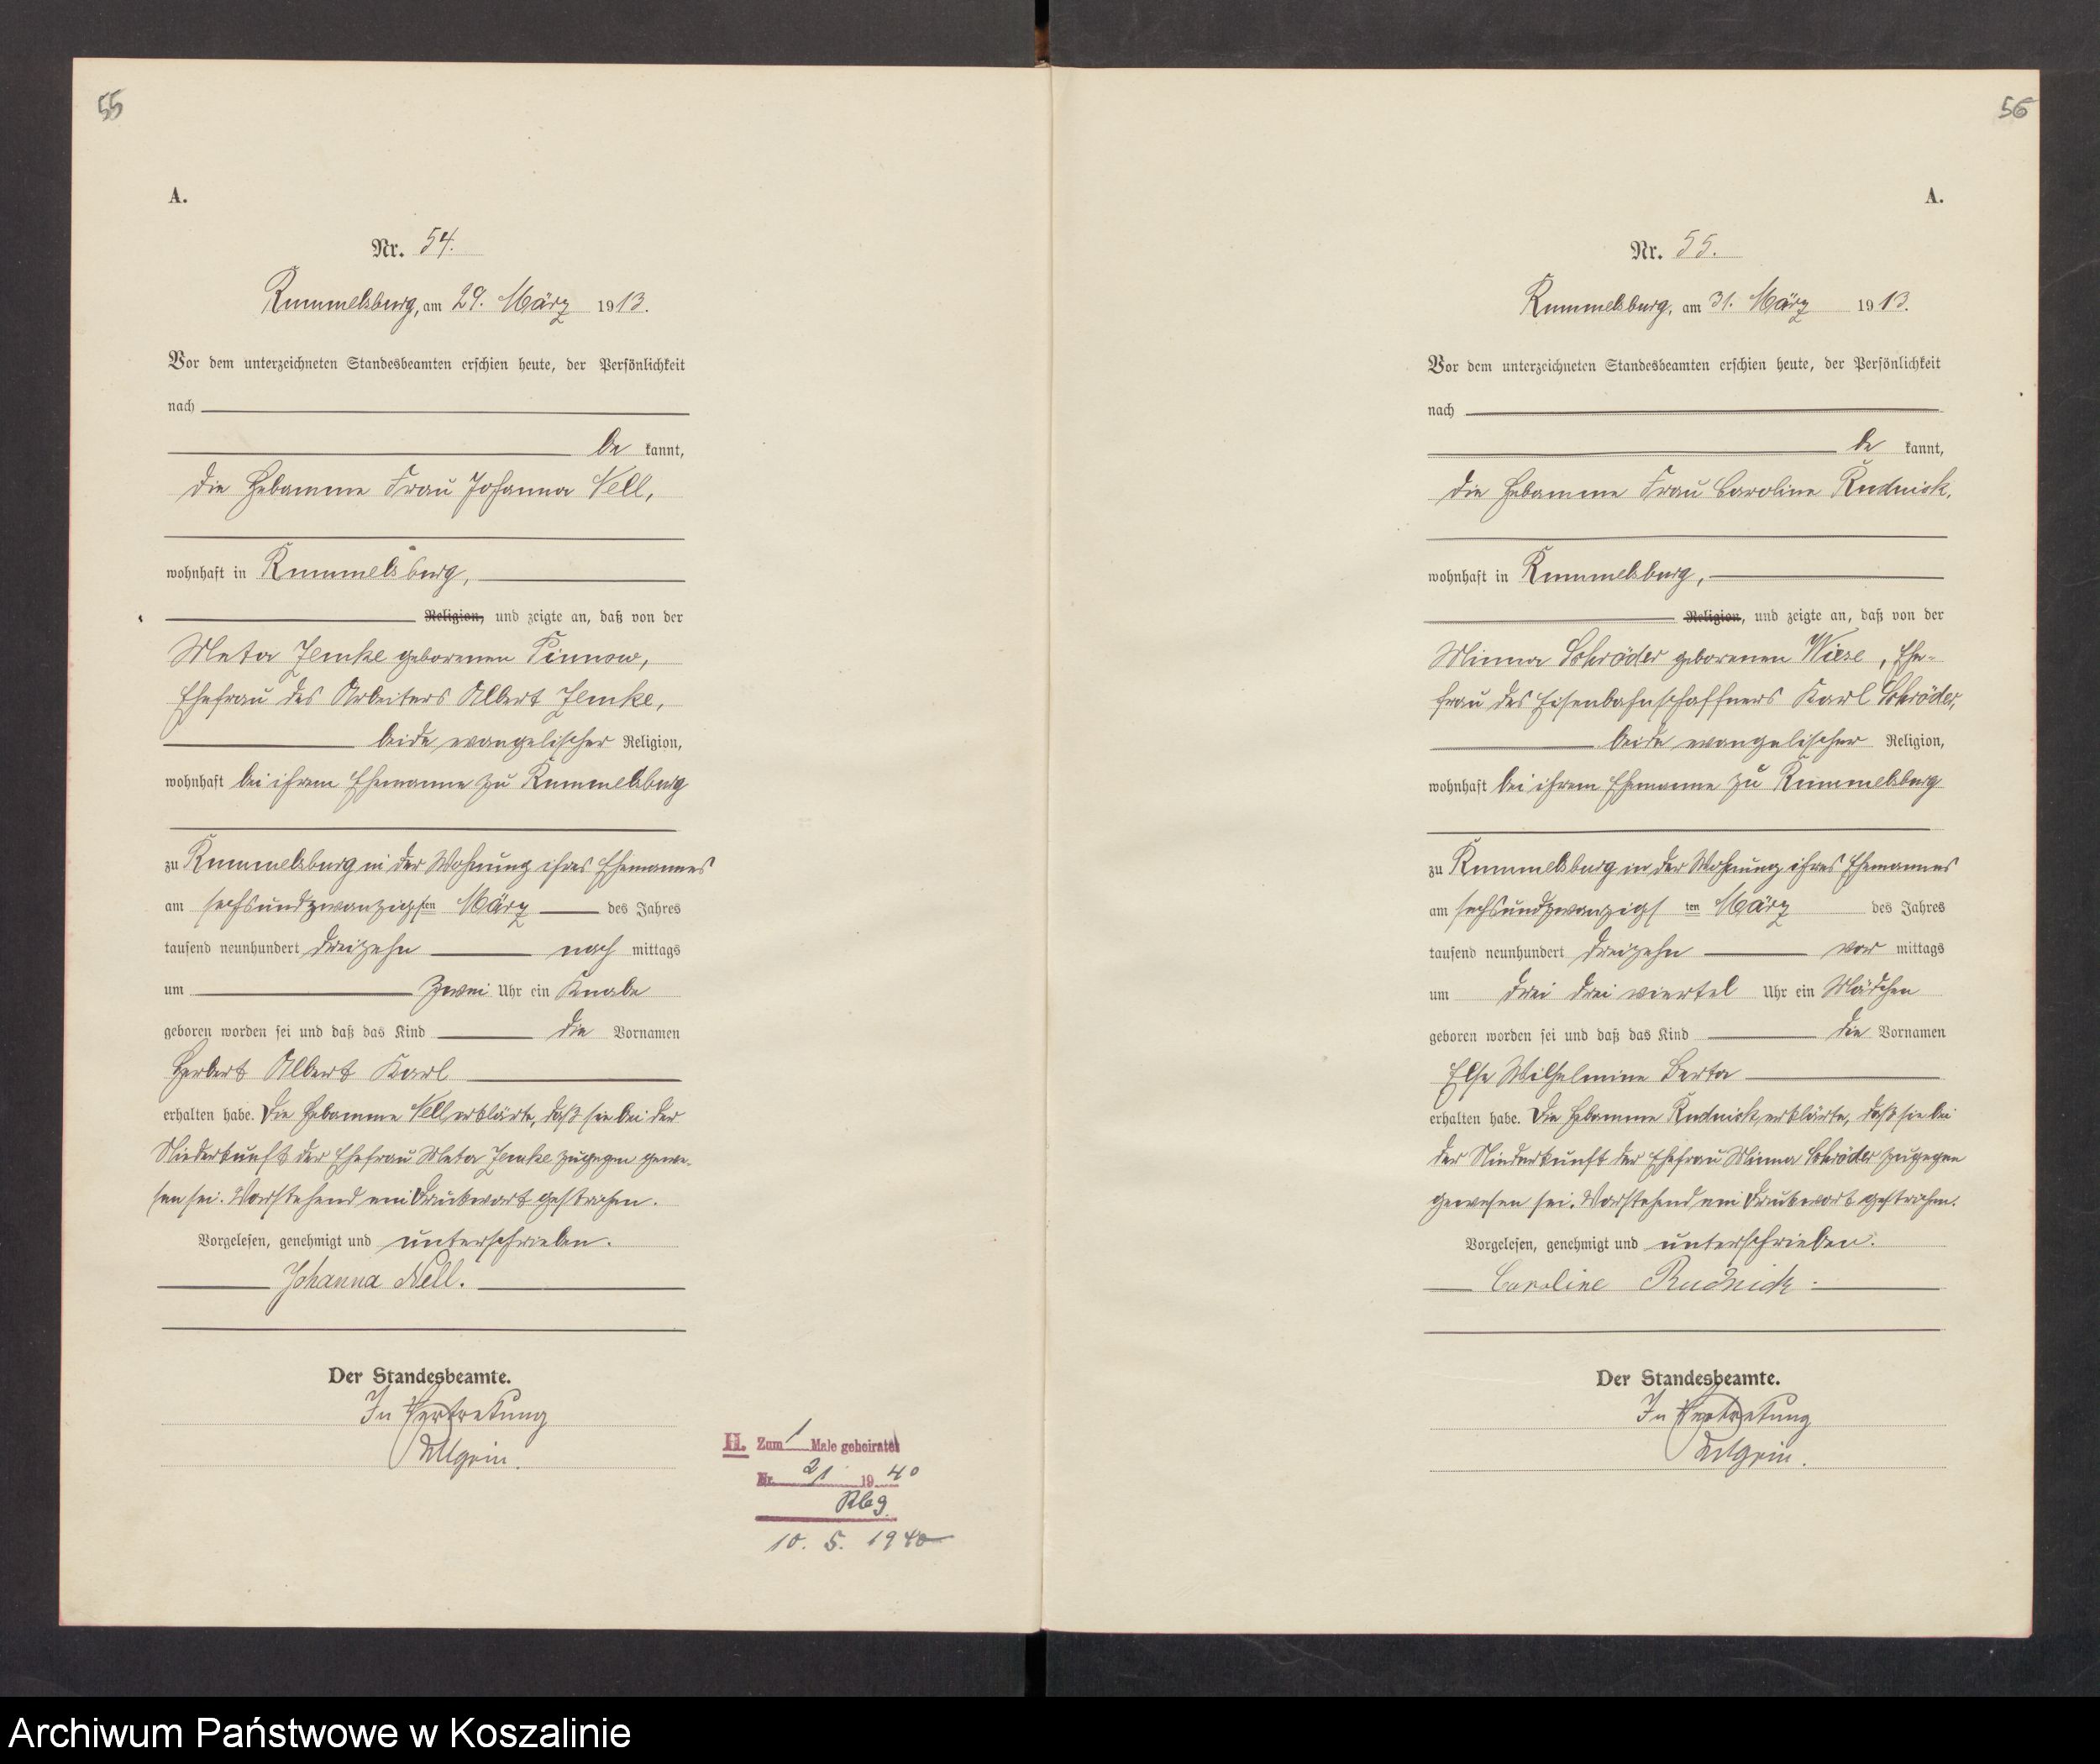 55
A.
Nr. 54.
Rummelsburg, am 29. März 1913.
Vor dem unterzeichneten Standesbeamten erschien heute, der Persönlichkeit
nach
be kannt,
die Hebamme Frau Johanna Nell,
wohnhaft in Rummelsburg,
Religion, und zeigte an, daß von der
Meta Jemke geborenen Pinnow,
Ehefrau des Arbeiters Albert Jemke,
beide evangelischer Religion,
wohnhaft bei ihrem Ehemanne zu Rummelsburg
zu Rummelsburg in der Wohnung ihres Ehemannes
am sechsundzwanzigsten März des Jahres
tausend neunhundert dreizehn nach mittags
um zwei Uhr ein Knabe
geboren worden sei und daß das Kind die Vornamen
Herbert Albert Karl
erhalten habe. Die Hebamme Nell erklärte, daß sie bei der
Niederkunft der Ehefrau Meta Jemke zugegen gewe-
sen sei. Vorstehend ein Druckwort gestrichen.
Vorgelesen, genehmigt und unterschrieben.
Johanna Nell.
Der Standesbeamte.
In Vertretung
H. Zum 1 Male geheiratet
Nr. 21 1940
Rbg.
10. 5. 1940
56
A.
Nr. 55.
Rummelsburg, am 31. März 1913.
Vor dem unterzeichneten Standesbeamten erschien heute, der Persönlichkeit
nach
be kannt,
die Hebamme Frau Caroline Rudnick,
wohnhaft in Rummelsburg,
Religion, und zeigte an, daß von der
Minna Schröder geborenen Wiese, Ehe-
frau des Eisenbahnschaffners Karl Schröder,
beide evangelischer Religion,
wohnhaft bei ihrem Ehemanne zu Rummelsburg
zu Rummelsburg in der Wohnung ihres Ehemannes
am sechsundzwanzigsten März des Jahres
tausend neunhundert dreizehn vor mittags
um drei drei viertel Uhr ein Mädchen
geboren worden sei und daß das Kind die Vornamen
Else Wilhelmine Berta
erhalten habe. Die Hebamme Rudnick erklärte, daß sie bei
der Niederkunft der Ehefrau Minna Schröder zugegen
gewesen sei. Vorstehend ein Druckwort gestrichen.
Vorgelesen, genehmigt und unterschrieben.
Caroline Rudnick.
Der Standesbeamte.
In Vertretung
Archiwum Państwowe w Koszalinie